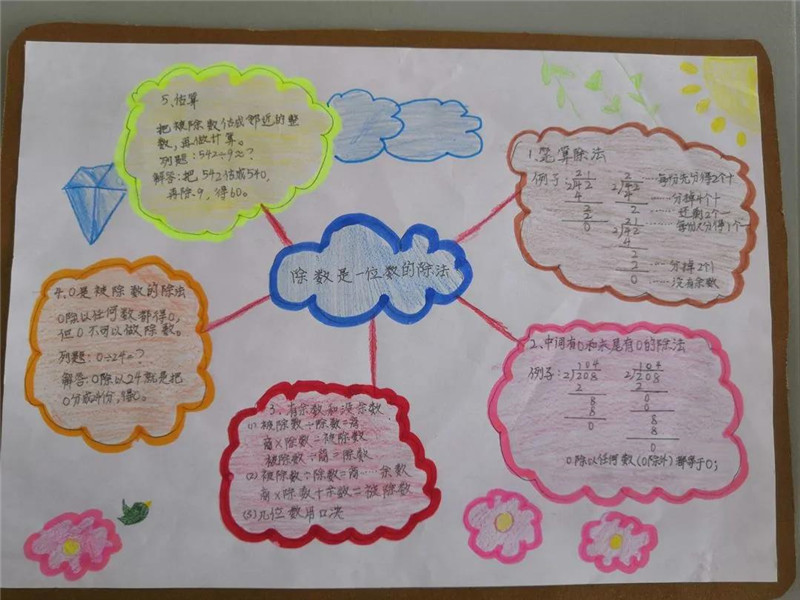 除数是一位数的除法
1、笔算除法
例子: 21 2
2√42 2√42 ……每份先分得2个十
4 4 ……分掉4个十
2 2 ……还剩2个一
2 21
0 2√42
4
2
2 ……分掉2个1
0 ……没有余数
2、中间有0和末尾有0的除法
例子: 104 104
2√208 2√208
2 2
8 0
8 0
0 8
8
0
0除以任何数(0除外)都等于0;
3、有余数和没余数
(1) 被除数÷除数=商
商×除数=被除数
被除数÷商=除数
(2) 被除数÷除数=商……余数
商×除数+余数=被除数
(3) 几位数用口决
4、0是被除数的除法
0除以任何数都得0,
但0不可以做除数。
列题:0÷24=?
解答:0除以24就是把
0分成24份,
5、估算
把被除数估成邻近的整
数,再做计算。
列题:542÷9≈?
解答:把542估成540,
再除9,得60。